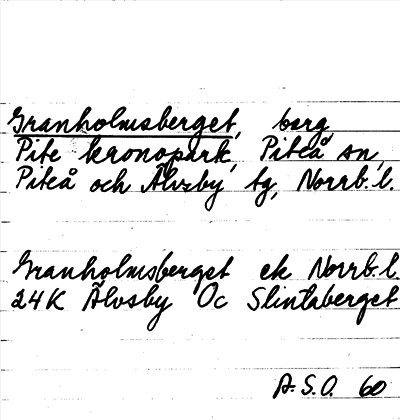 Granholmsberget, berg,
Pite kronopark, Piteå sn,
Piteå och Älvsby tg, Norrb. l.
Granholmsberget ek Norrb. l.
24K Älvsby Öc Slintaberget
A. S. O. 60